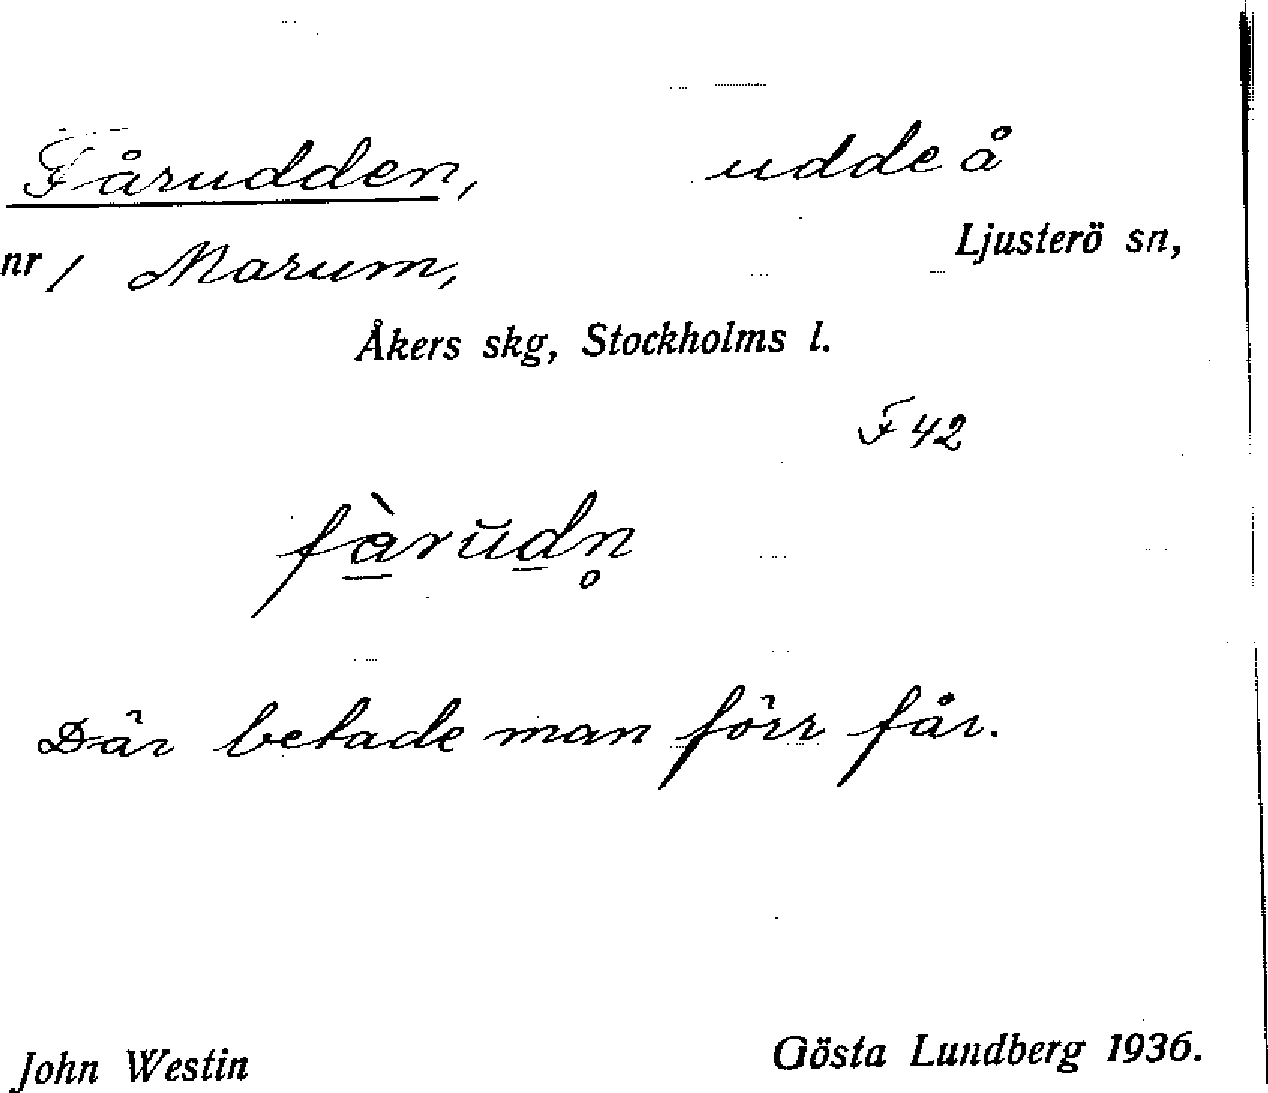 Fårudden, udde å
nr 1 Marum, Ljusterö sn,
Åkers skg, Stockholms l.
F 42
fà̲rŭd̲n̥
Där betade man förr får.
John Westin Gösta Lundberg 1936.